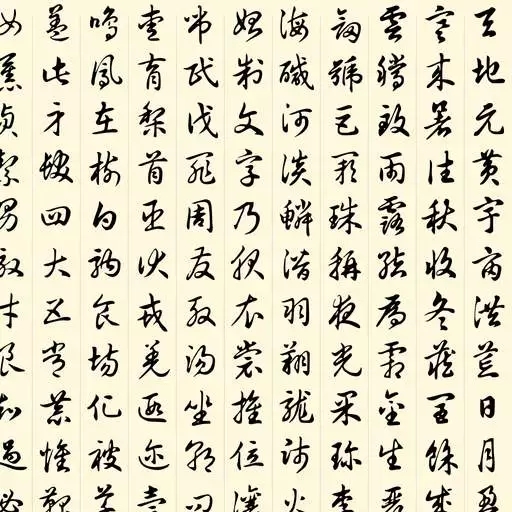 天地元黃宇宙洪荒日月盈
寒来暑往秋收冬藏閏餘成
雲騰致雨露結為霜金生麗
劍號巨闕珠稱夜光果珍李
海鹹河淡鱗潛羽翔龍師火
始制文字乃服衣裳推位讓
弔民伐罪周發殷湯坐朝問
愛育黎首臣伏戎羌遐迩壹
鳴鳳在樹白駒食場化被草
蓋此身髮四大五常恭惟鞠
女慕貞潔男效才良知過必